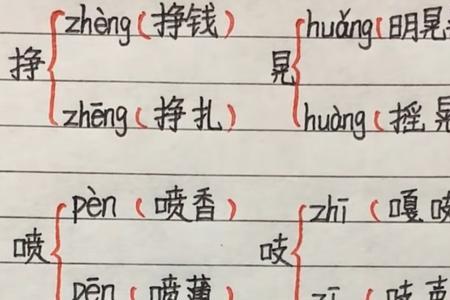 zhèng(挣钱) huǎng(明晃
挣 晃
zhēng(挣扎) huàng(摇晃
pèn(喷香) zhī(嘎吱
喷 吱
pēn(喷薄) zī(吱声